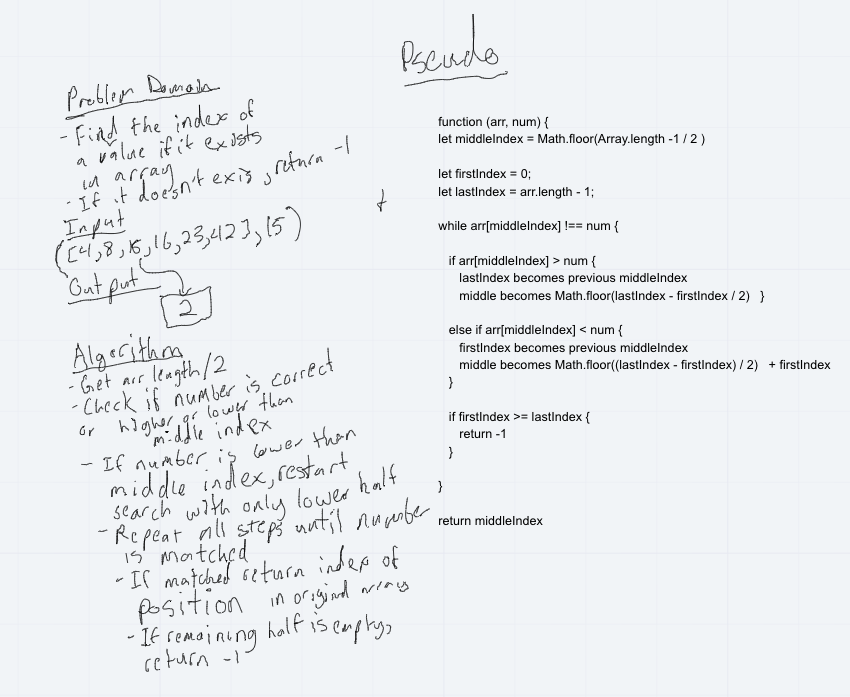 Problem Domain
- Find the index of
a value if it exists
in array
- If it doesn't exis, return -1
Input
([4,8,15,16,23,42], 15)
Output
2
Algorithm
- Get arr length/2
- Check if number is correct
or higher or lower than
middle index
- If number is lower than
middle index, restart
search with only lower half
- Repeat all steps until number
is matched
- If matched return index of
position in original array
- If remaining half is empty,
return -1
Pseudo
function (arr, num) {
let middleIndex = Math.floor(Array.length -1 / 2 )
let firstIndex = 0;
let lastIndex = arr.length - 1;
while arr[middleIndex] !== num {
if arr[middleIndex] > num {
lastIndex becomes previous middleIndex
middle becomes Math.floor(lastIndex - firstIndex / 2) }
else if arr[middleIndex] < num {
firstIndex becomes previous middleIndex
middle becomes Math.floor((lastIndex - firstIndex) / 2) + firstIndex
}
if firstIndex >= lastIndex {
return -1
}
}
return middleIndex